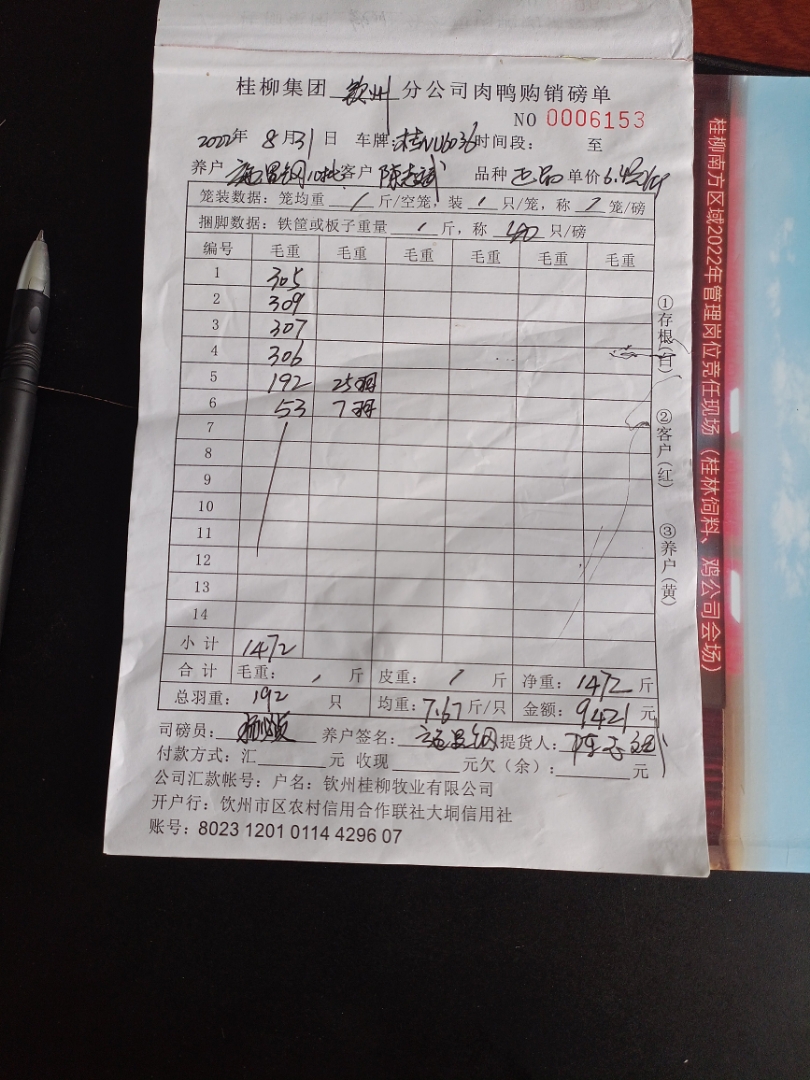 桂柳集团 钦州 分公司肉鸭购销磅单
NO 0006153
2022年 8月31日 车牌: NU6036 时间段: 至
养户 昌钢10批 客户 陈志斌 品种 正品 单价 6.4元/斤
笼装数据: 笼均重 / 斤/空笼, 装 / 只/笼, 称 / 笼/磅
捆脚数据: 铁筐或板子重量 / 斤, 称 40 只/磅
编号 毛重 毛重 毛重 毛重 毛重 毛重
1 305
2 309
3 307
4 306
5 192 25羽
6 53 7羽
7
8
9
10
11
12
13
14
小计 1472
合计 毛重: / 斤 皮重: / 斤 净重: 1472 斤
总羽重: 192 只 均重: 7.67 斤/只 金额: 9421 元
司磅员: 养户签名: 昌钢 提货人: 陈志斌
付款方式: 汇 元 收现 元欠(余): 元
公司汇款帐号: 户名: 钦州桂柳牧业有限公司
开户行: 钦州市区农村信用合作联社大垌信用社
账号: 8023 1201 0114 4296 07
①存根(白)
②客户(红)
③养户(黄)
桂柳南方区域2022年管理岗位竞任现场(桂林饲料、鸡公司会场)